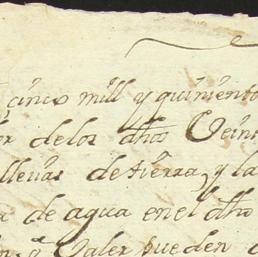 cinco mill y quiniento
or de los dhos Veint
llevas de tierra, y la
a de agua en el dho
Valer pueden